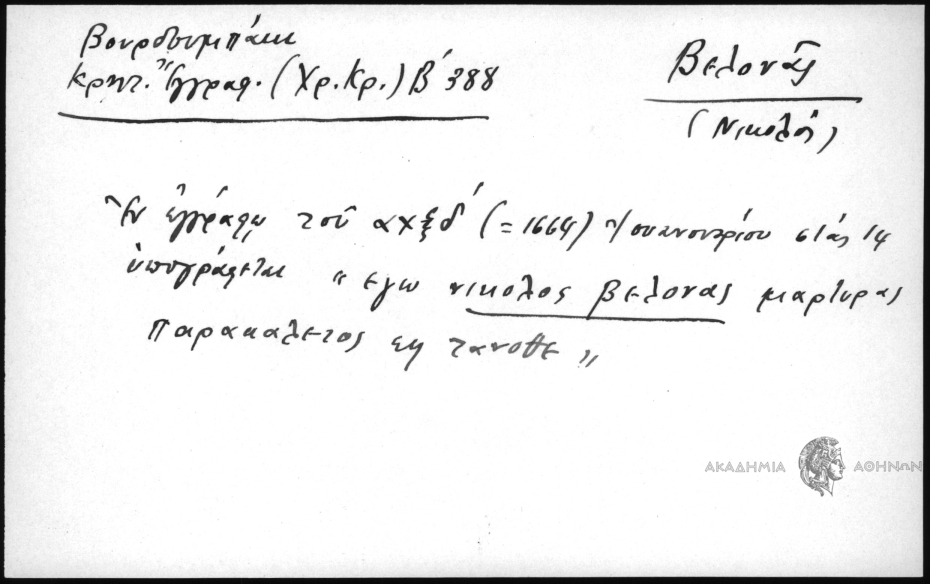 Βουρδουμπάκι
Κρητ. Ἔγγραφ. (Χρ. Κρ.) Β΄ 388
Βελονᾶς
(Νικολός)
Ἐν ἐγγράφῳ τοῦ αχξδ΄ (= 1664) Ἰουανουαρίου στάς 14
ὑπογράφεται „ εγω νικολος βελονας μαρτυρας
παρακαλετος εις τανοθε „
ΑΚΑΔΗΜΙΑ ΑΘΗΝΩΝ